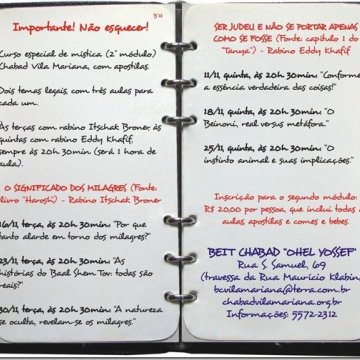 Importante! Não esquecer!
Curso especial de mística (2º módulo)
Chabad Vila Mariana, com apostilas.
Dois temas legais, com três aulas para
cada um.
Às terças com rabino Itschat Broner, às
quintas com rabino Eddy Khafif,
sempre às 20h 30min (será 1 hora de
aula).
O SIGNIFICADO DOS MILAGRES (Fonte:
livro "Haroshi) - Rabino Itschat Broner
16/11 terça, às 20h 30min: "Por que
tanto alarde em torno dos milagres?"
23/11 terça, às 20h 30min: "As
histórias do Baal Shem Tov: todas são
reais?"
30/11 terça, às 20h 30min: "A natureza
se oculta, revelam-se os milagres."
SER JUDEU E NÃO SE PORTAR APENAS
COMO SE FOSSE (Fonte: capítulo 1 do
"Tanya") - Rabino Eddy Khafif
11/11, quinta, às 20h 30min: "Conforme
a essência verdadeira das coisas!"
18/11, quinta, às 20h 30min: "O
Beinoni, real versus metáfora."
25/11, quinta, às 20h 30min: "O
instinto animal e suas implicações."
Inscrição para o segundo módulo:
R$ 20,00 por pessoa, que inclui todas as
aulas, apostilas e comes e bebes.
BEIT CHABAD "OHEL YOSSEF"
Rua S. Samuel, 69
(travessa da Rua Maurício Klabin)
bcvilamariana@terra.com.br
chabadvilamariana.org.br
Informações: 5572-2312